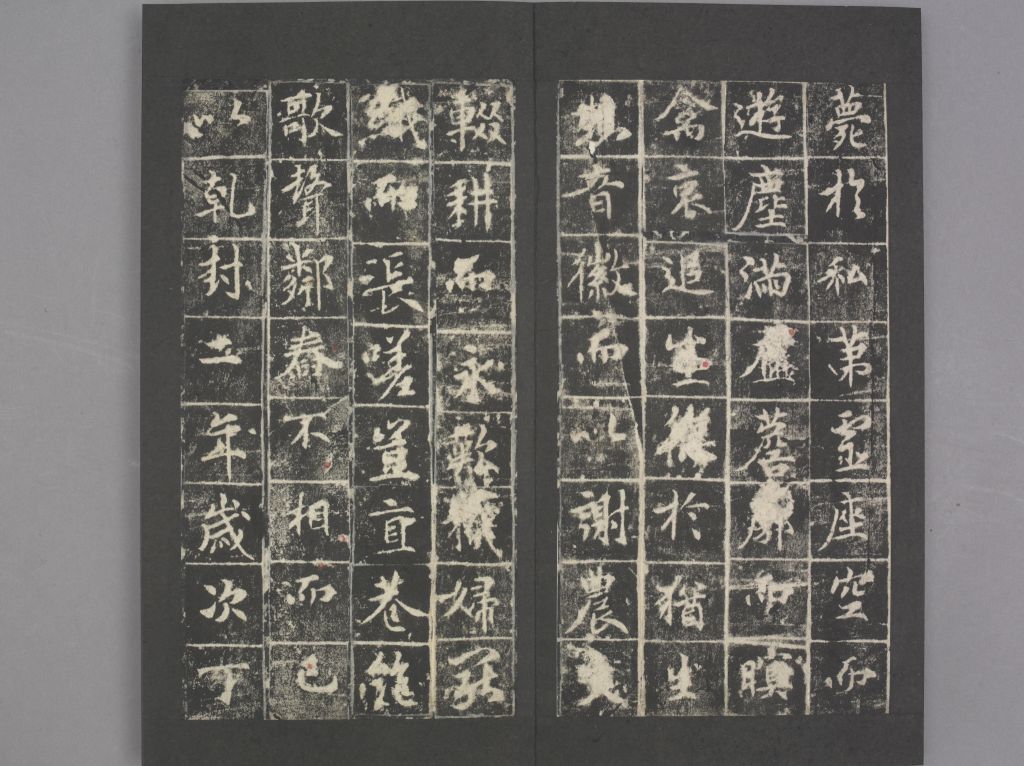 薨於私第靈座空而
遊塵滿廓而暝
禽哀追生於猶生
音徽而以謝農夫
輟耕而永歎機婦罷
織而漲嗟豈直巷
歌聲鄰舂不相而已
以乾封二年歲次丁